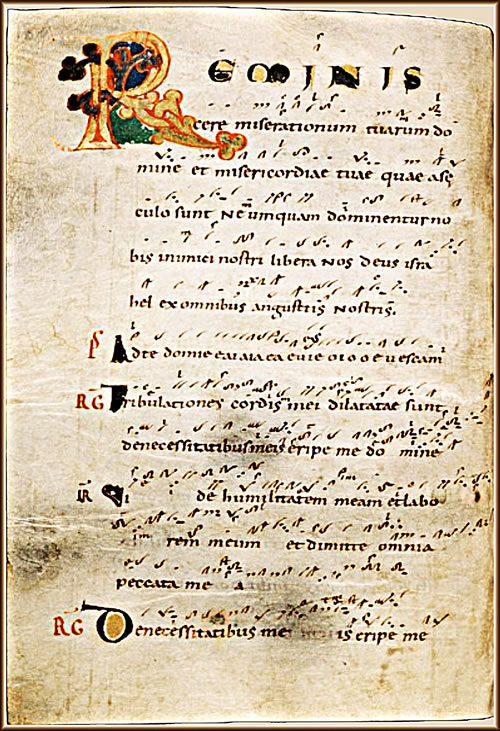 REMINIS
cere miserationum tuarum do
mine et misericordiae tuae quae asę
culo sunt Ne umquam dominentur no
bis inimici nostri libera nos deus isra
hel ex omnibus angustiis nostris.
Ad te domine
RG Tribulationes cordis mei dilatatae sunt
denecessitatibus meis eripe me do mine
R Vi de humilitatem meam et labo
rem meum et dimitte omnia
peccata me a
RG Denecessitatibus me is eripe me